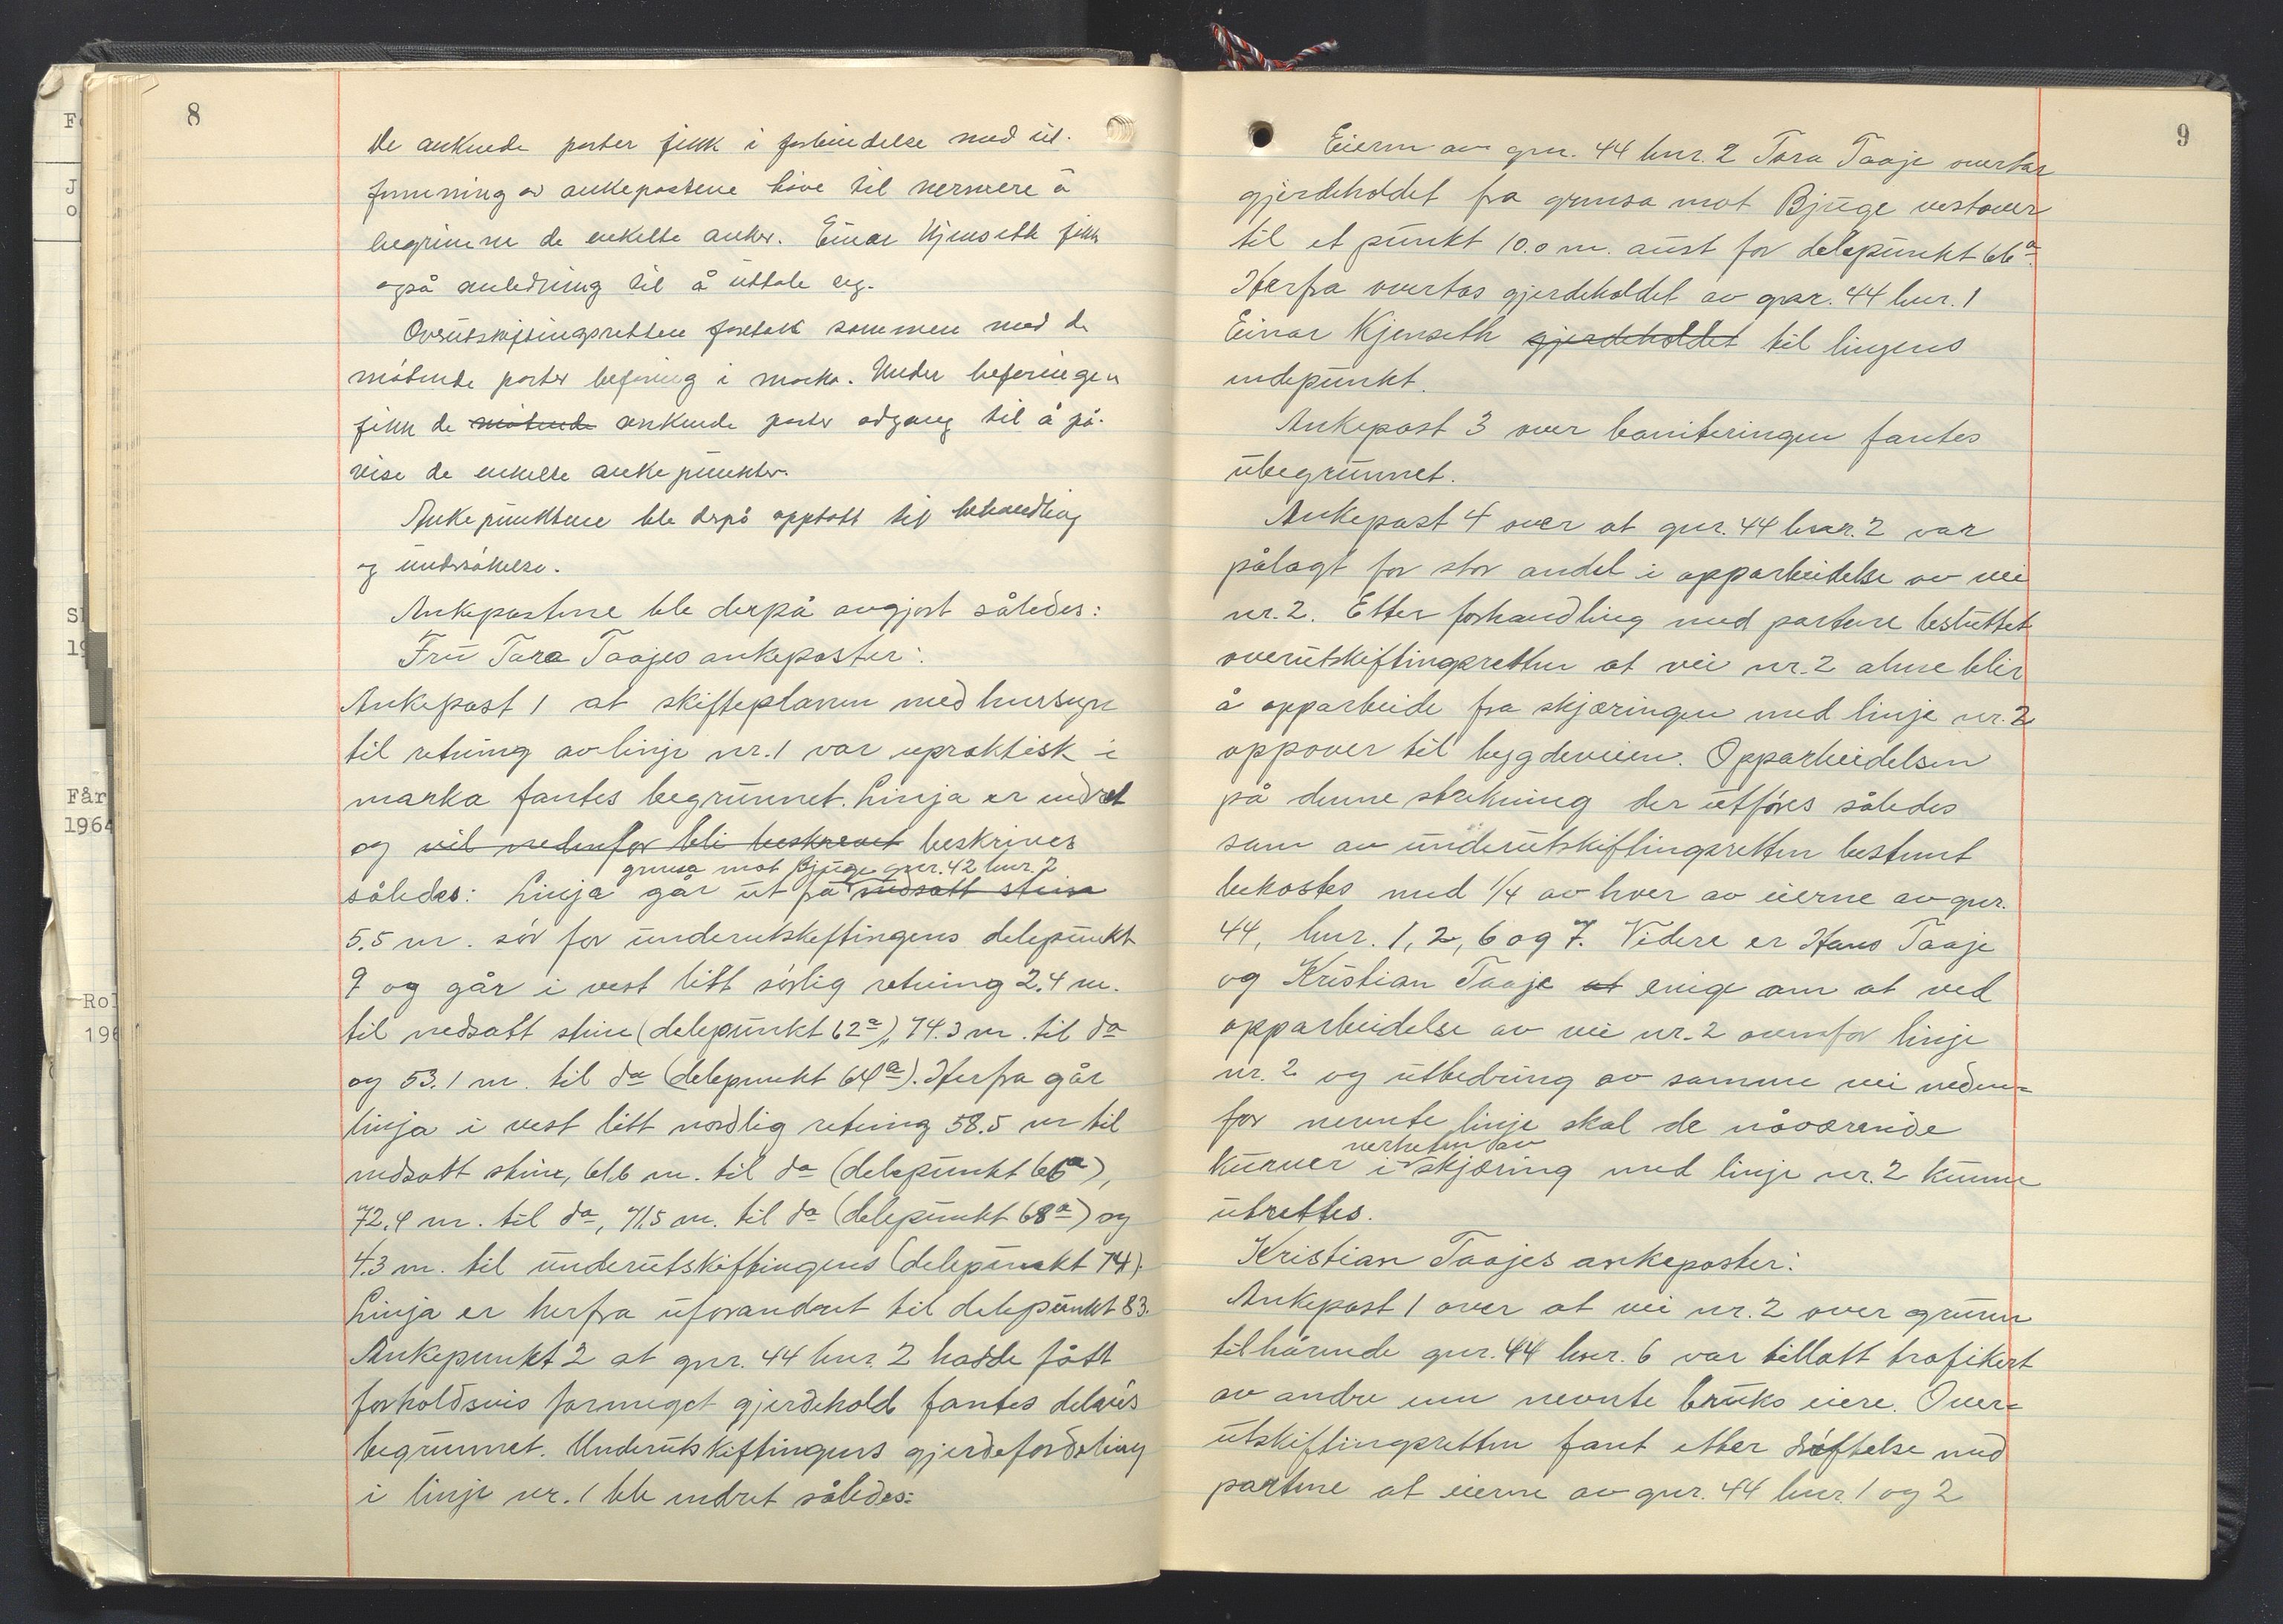 8
De ankende parter fikk i forbindelse med ut-
forming av ankepostene höve til nermere å
begrunne de enkelte anker. Einar Kjenseth fikk
også anledning til å uttale seg.
Overutskiftingsretten foretok sammen med de
mötende parter befaring i marka. Under befaringen
fikk de mötende ankende parter adgang til å på-
vise de enkelte ankepunkter.
Ankepunktene ble derpå opptatt til behandling
og undersökelse.
Ankepostene ble derpå avgjort således:
Fru Tara Taajes ankeposter:
Ankepost 1 at skifteplanen med hensyn
til retning av linje nr. 1 var upraktisk i
marka fantes begrunnet. Linja er endret
og vil nedenfor bli beskrevet beskrives
grinsa mot Bjuge gnr. 42 bnr. 2
således: Linja går ut fra nedsatt steina
5.5 m. sör for underutskiftingens delepunkt
9 og går i vest litt sörlig retning 2.4 m.
til nedsatt steine (delepunkt 62a), 74.3 m. til do
og 53.1 m. til do (delepunkt 64a). Herfra går
linja i vest litt nordlig retning 58.5 m til
nedsatt steine, 61.6 m. til do (delepunkt 66a),
72.4 m. til do, 71.5 m. til do (delepunkt 68a) og
4.3 m. til underutskiftingens (delepunkt 74).
Linja er herfra uforandret til delepunkt 83.
Ankepunkt 2 at gnr. 44 bnr. 2 hadde fått
forholdsvis formeget gjerdehold fantes delvis
begrunnet. Underutskiftingens gjerdefordeling
i linje nr. 1 ble endret således:
9
Eieren av gnr. 44 bnr. 2 Tara Taaje overtar
gjerdeholdet fra grinsa mot Bjuge vestover
til et punkt 10.0 m. aust for delepunkt 66a.
Herfra overtas gjerdeholdet av gnr. 44 bnr. 1
Einar Kjenseth gjerdeholdet til linjens
endepunkt.
Ankepost 3 over boniteringen fantes
ubegrunnet.
Ankepost 4 over at gnr. 44 bnr. 2 var
pålagt for stor andel i opparbeidelse av vei
nr. 2. Etter forhandling med partene besluttet
overutskiftingsretten at vei nr. 2 alene blir
å opparbeide fra skjæringen med linje nr. 2
oppover til bygdeveien. Opparbeidelsen
på denne strekning der utföres således
som av underutskiftingsretten bestemt
bekostes med 1/4 av hver av eierne av gnr.
44, bnr. 1, 2, 6 og 7. Videre er Hans Taaje
og Kristian Taaje at enige om at ved
opparbeidelse av vei nr. 2 ovenfor linje
nr. 2 og utbedring av samme vei neden-
for nevnte linje skal de nåværende
nerheten av
kurver i skjæring med linje nr. 2 kunne
utrettes.
Kristian Taajes ankeposter:
Ankepost 1 over at vei nr. 2 over grunn
tilhörende gnr. 44 bnr. 6 var tillatt trafikert
av andre enn nevnte bruks eiere. Over-
utskiftingsretten fant etter dröftelse med
partene at eierne av gnr. 44 bnr. 1 og 2